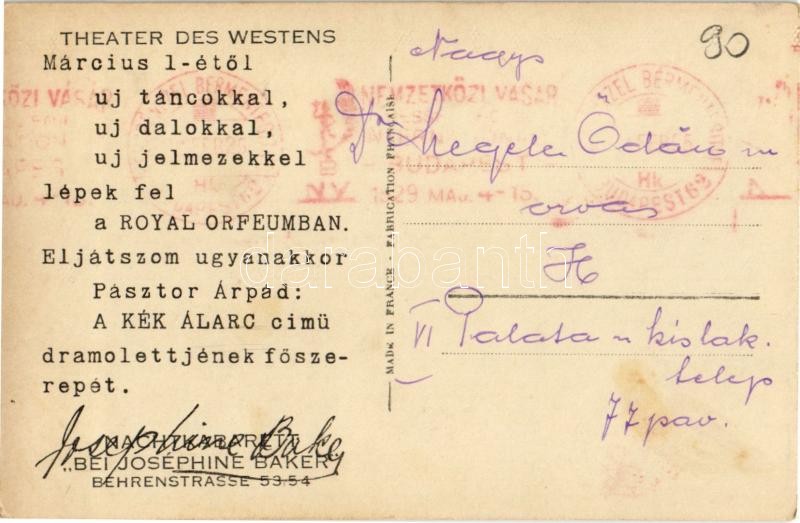 THEATER DES WESTENS
Március 1-étől
uj táncokkal,
uj dalokkal,
uj jelmezekkel
lépek fel
a ROYAL ORFEUMBAN.
Eljátszom ugyanakkor
Pásztor Árpád:
A KÉK ÁLARC cimü
dramolettjének fősze-
repét.
NACHTKABARETT
„BEI JOSÉPHINE BAKER"
BEHRENSTRASSE 53.54
Josephine Baker
MADE IN FRANCE - FABRICATION FRANÇAISE
90
Nagys
Dr Szegela Ödön
orvos
VI
kislak.
telep
77 pav.
NEMZETKÖZI VÁSÁR
BUDAPEST
1929 MÁJ. 4-13
BUDAPEST 62
darabanth